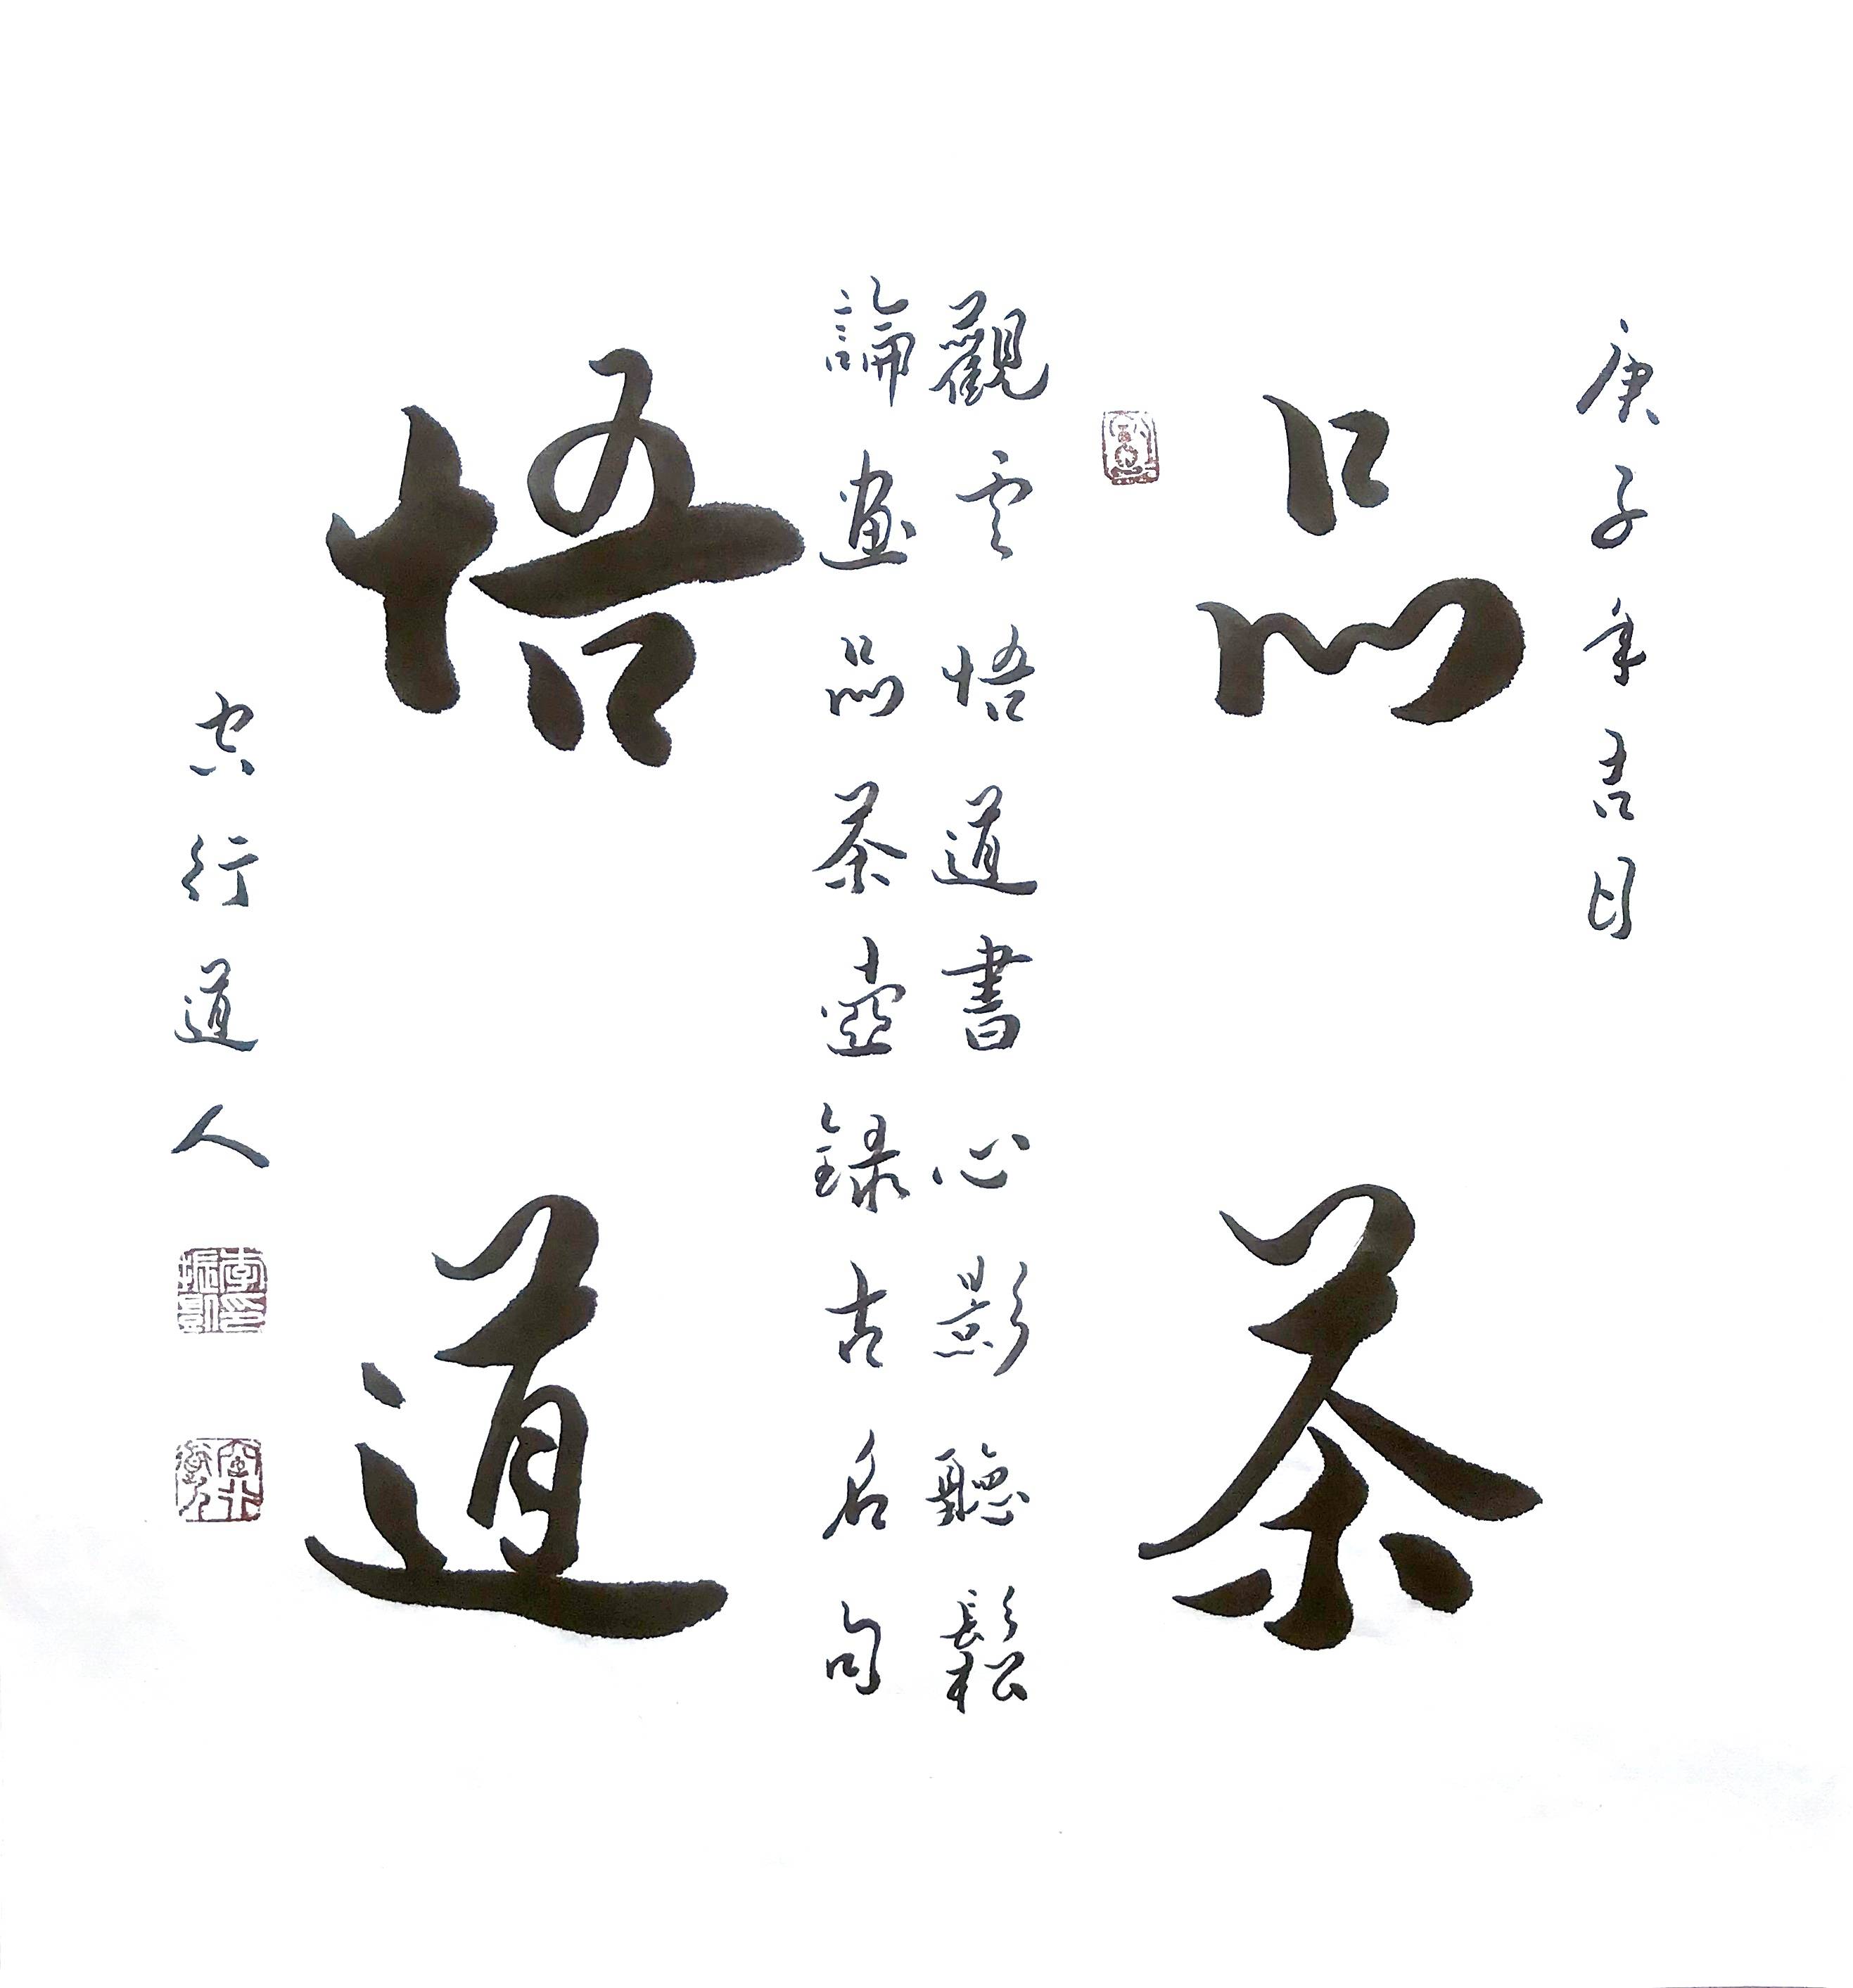 庚子年吉日
品茶
觀雲悟道書心影聽鬆
論畫品茶壺録古名句
悟道
空行道人
空行道人